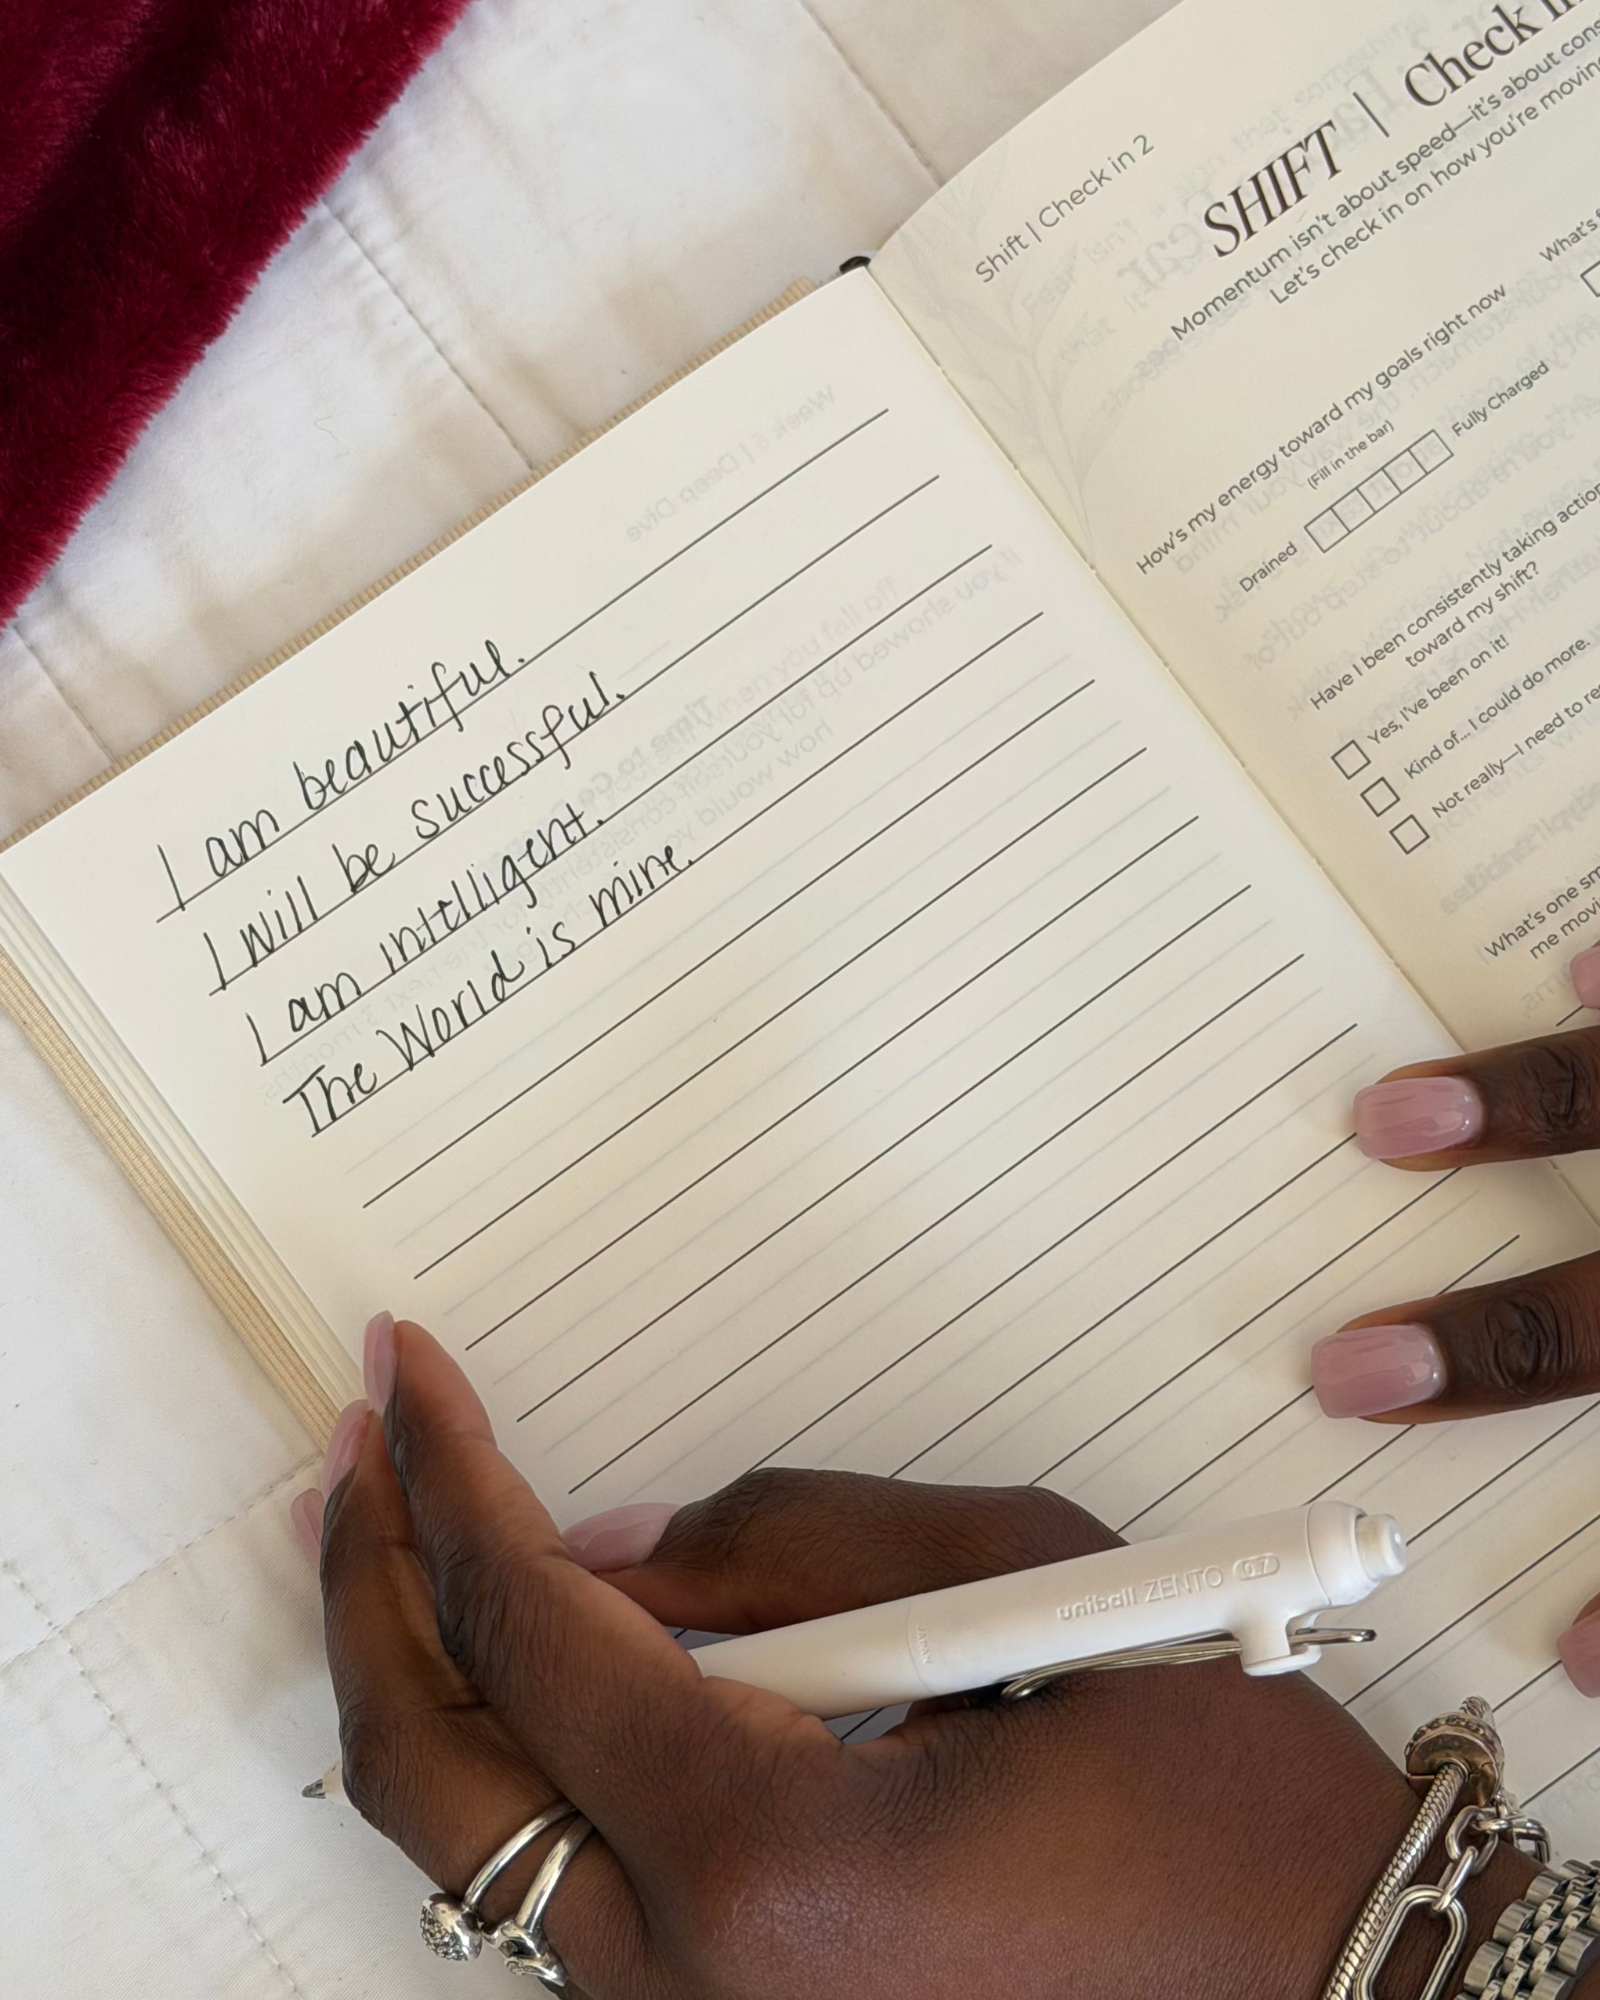 I am beautiful.
I will be successful.
I am intelligent.
The World is mine.
Shift | Check in 2
SHIFT | Check in
Momentum isn't about speed—it's about cons
Let's check in on how you're moving
How's my energy toward my goals right now
(Fill in the bar)
Drained
Fully Charged
What's
Have I been consistently taking action
toward my shift?
Yes, I've been on it!
Kind of... I could do more.
Not really—I need to re
What's one sm
me movi
uniball ZENTO 0.7
JAPAN